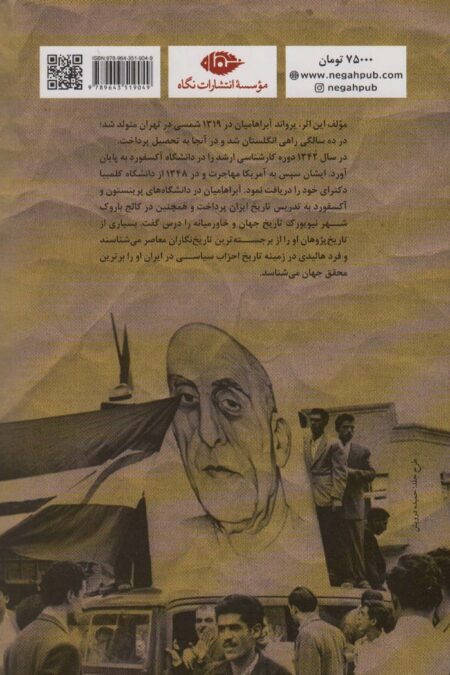 ISBN: 978-964-351-904-9
9 789643 519049
مؤسسهٔ انتشارات نگاه
۷۵۰۰۰ تومان
www.negahpub.com
negahpub
مؤلف این اثر، یرواند آبراهامیان در ۱۳۱۹ شمسی در تهران متولد شد؛
در ده سالگی راهی انگلستان شد و در آنجا به تحصیل پرداخت.
در سال ۱۳۴۲ دوره کارشناسی ارشد را در دانشگاه آکسفورد به پایان
آورد. ایشان سپس به آمریکا مهاجرت و در ۱۳۴۸ از دانشگاه کلمبیا
دکترای خود را دریافت نمود. آبراهامیان در دانشگاه‌های پرینستون و
آکسفورد به تدریس تاریخ ایران پرداخت و همچنین در کالج باروک
شهر نیویورک تاریخ جهان و خاورمیانه را درس گفت. بسیاری از
تاریخ‌پژوهان او را از برجسته‌ترین تاریخ‌نگاران معاصر می‌شناسند
و فرد هالیدی در زمینه تاریخ احزاب سیاسی در ایران او را برترین
محقق جهان می‌شناسد.
طرح جلد: